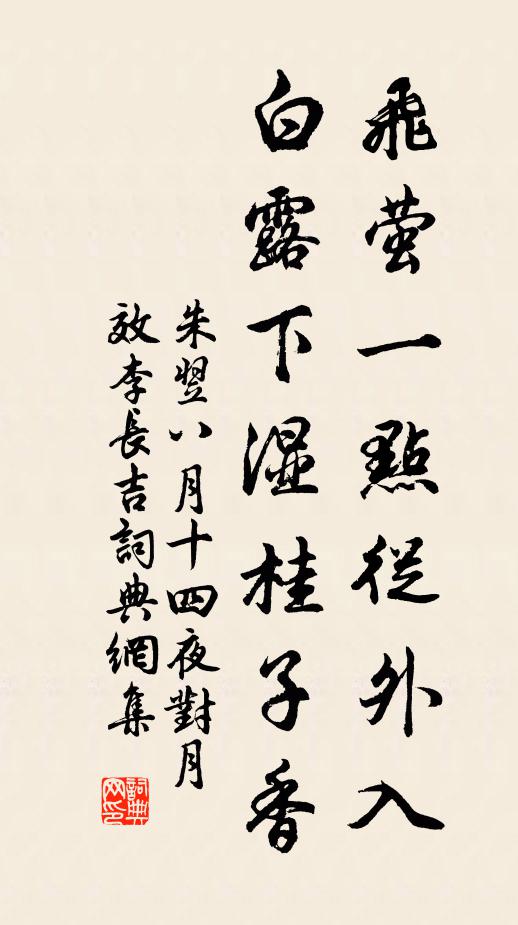 飛萤一點從外入
白露下湿桂子香
朱翌八月十四夜對月
效李長吉詞典網集
詞典
网印